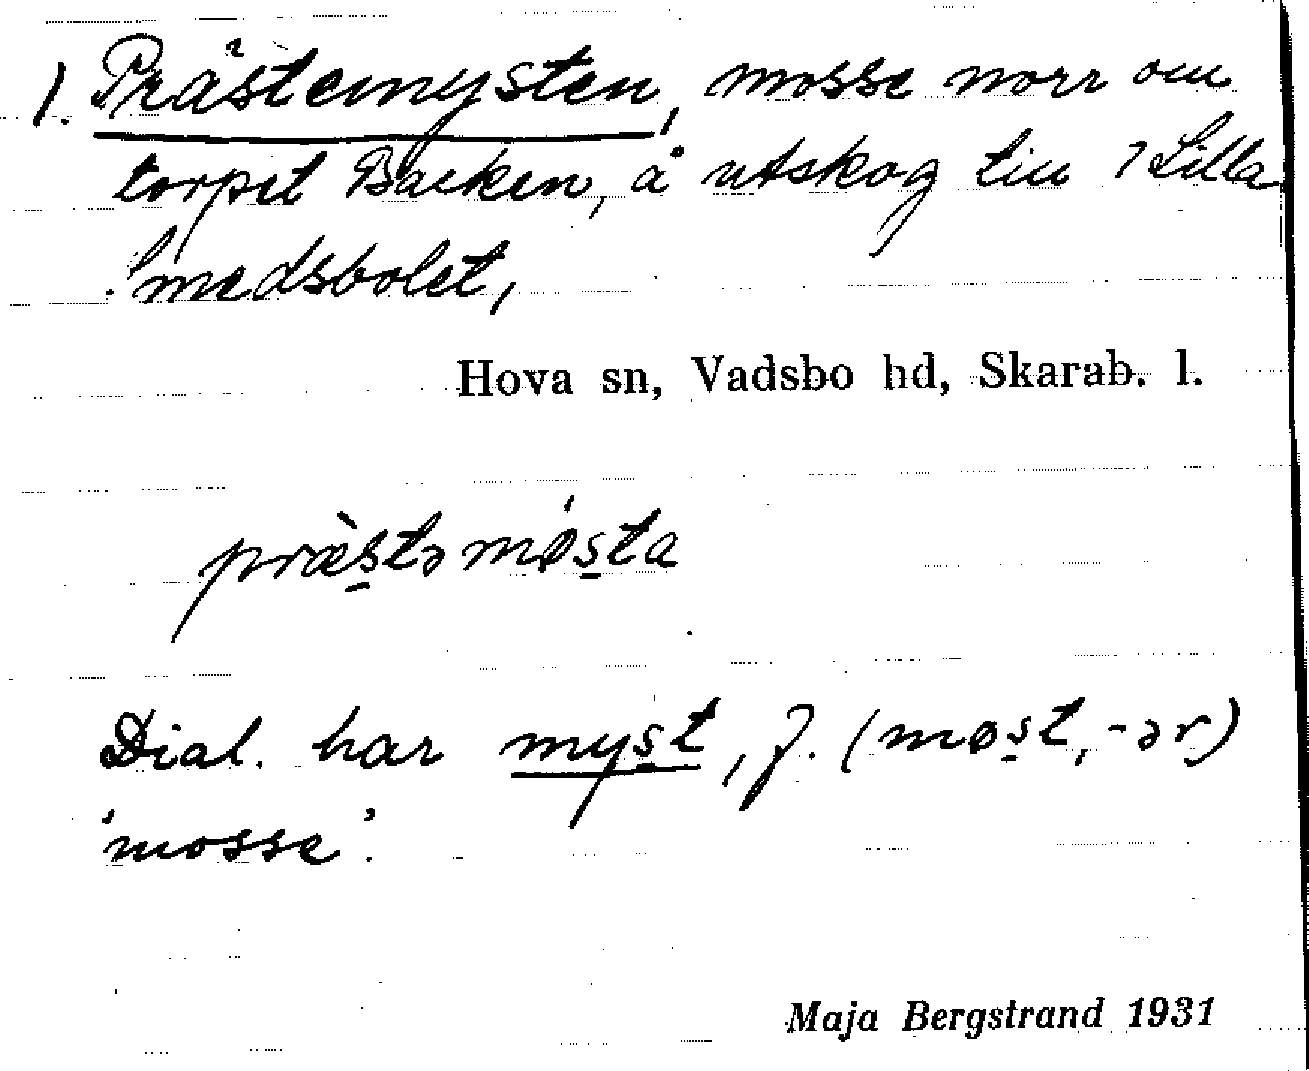 1. Prästemysten, mosse norr om
torpet Backen, å utskog till 1 Lilla
Smedsbolet,
Hova sn, Vadsbo hd, Skarab. l.
præ̀stəmǿsta
Dial. har myst, f. (møst, -ər)
'mosse'.
Maja Bergstrand 1931